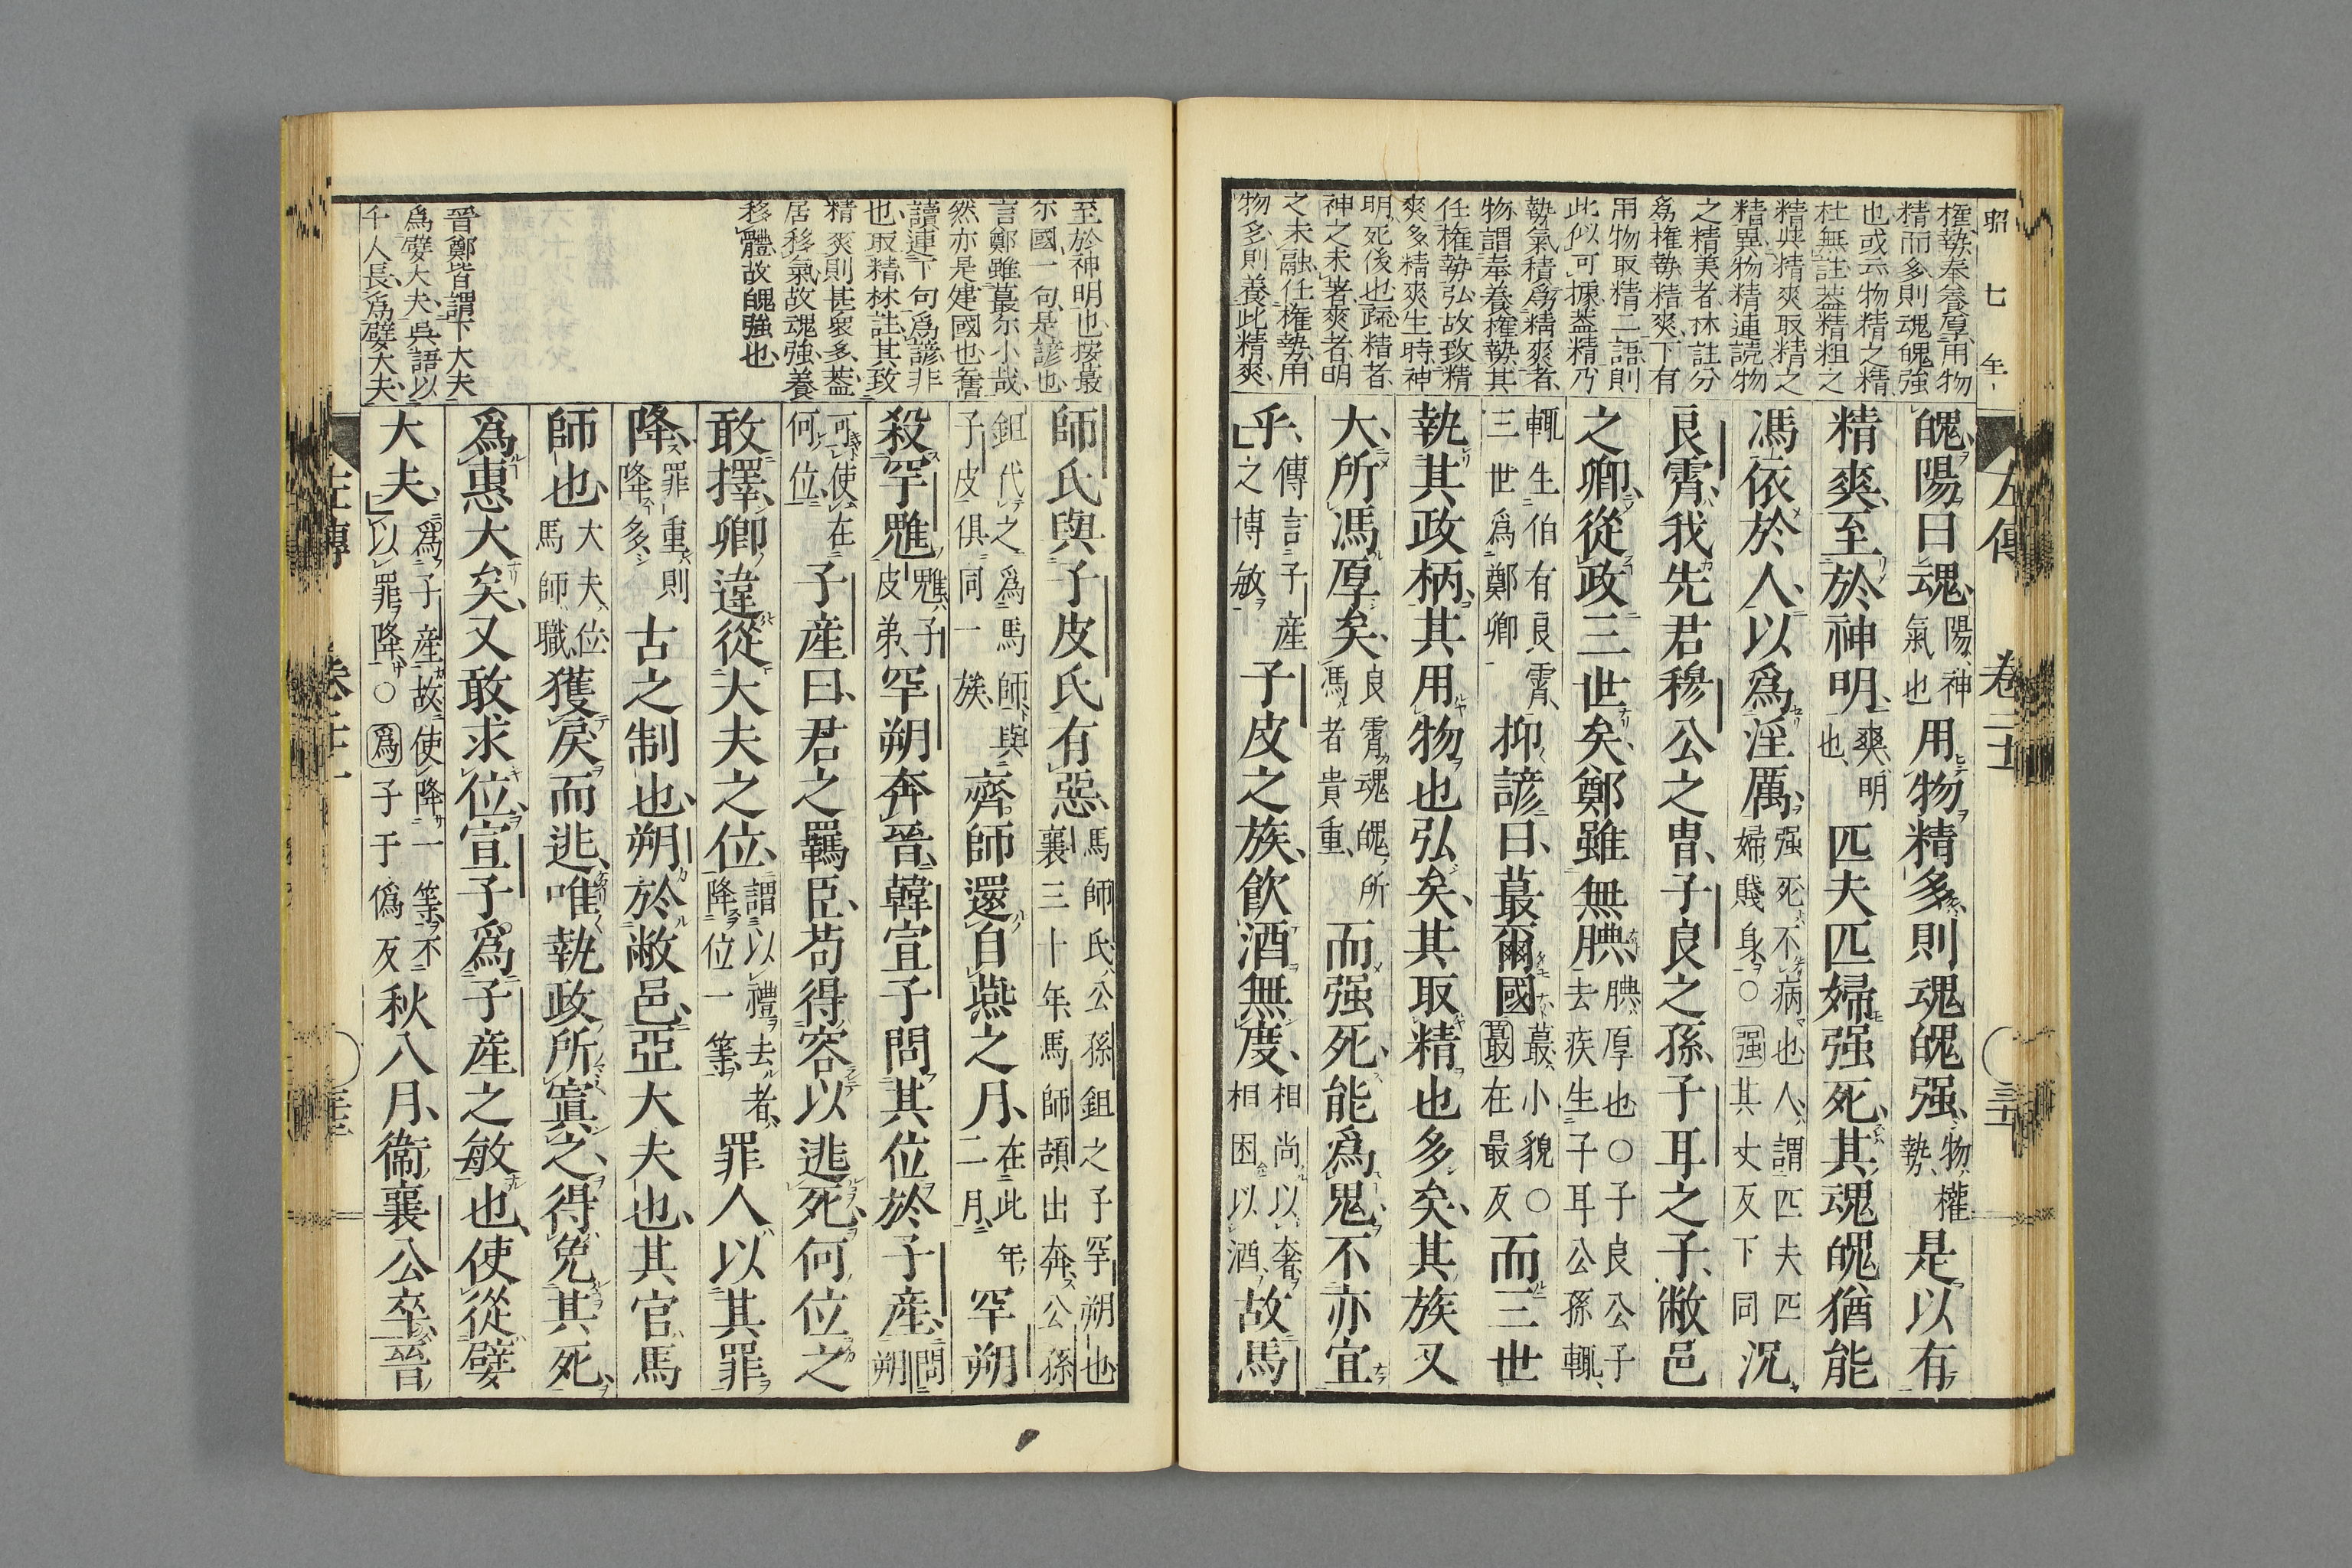 昭七年
權勢奉養厚用物
精而多則魂魄強
也或云物精之精
杜無註蓋精粗之
精與精爽取精之
精異物精連讀物
之精美者林註分
爲權勢精爽下有
用物取精二語則
此似可據蓋精乃
勢氣積爲精爽者
物謂奉養權勢其
任權勢弘故致精
爽多精爽生時神
明死後也疏精者
神之未著爽者明
之未融任權勢用
物多則養此精爽
左傳 卷二十一
魄陽曰魂陽神氣也用物精多則魂魄强物權勢是以有
精爽至於神明爽明也匹夫匹婦强死其魂魄猶能
馮依於人以爲淫厲强死不病也人謂匹夫匹婦賤身○强其丈反下同況
良霄我先君穆公之冑子良之孫子耳之子敝邑
之卿從政三世矣鄭雖無腆腆厚也○子良公子去疾生子耳公孫輒
輒生伯有良霄三世爲鄭卿抑諺曰蕞爾國蕞小貌○蕞在最反而三世
執其政柄其用物也弘矣其取精也多矣其族又
大所馮厚矣良霄魂魄所馮者貴重而强死能爲鬼不亦宜
乎傳言子產之博敏子皮之族飲酒無度相尚以奢相困以酒故馬
至於神明也按蕞
尓國一句是諺也
言鄭雖蕞尓小哉
然亦是建國也舊
讀連下句爲諺非
也取精林註其致
精爽則甚衆多蓋
居移氣故魂強養
移體故魄強也
晉鄭皆謂下大夫
爲嬖大夫吳語以
千人長爲嬖大夫
師氏與子皮氏有惡馬師氏公孫鉏之子罕朔也襄三十年馬師頡出奔公孫
鉏代之爲馬師與子皮俱同一族齊師還自燕之月在此年二月罕朔
殺罕魋魋子皮弟罕朔奔晉韓宣子問其位於子產問朔
可使在何位子產曰君之羈臣苟得容以逃死何位之
敢擇卿違從大夫之位謂以禮去者降位一等罪人以其罪
降罪重則降多古之制也朔於敝邑亞大夫也其官馬
師也大夫位馬師職獲戾而逃唯執政所寘之得免其死
爲惠大矣又敢求位宣子爲子產之敏也使從嬖
大夫爲子產故使降一等不以罪降○爲子于僞反秋八月衞襄公卒晉
左傳 卷二十一